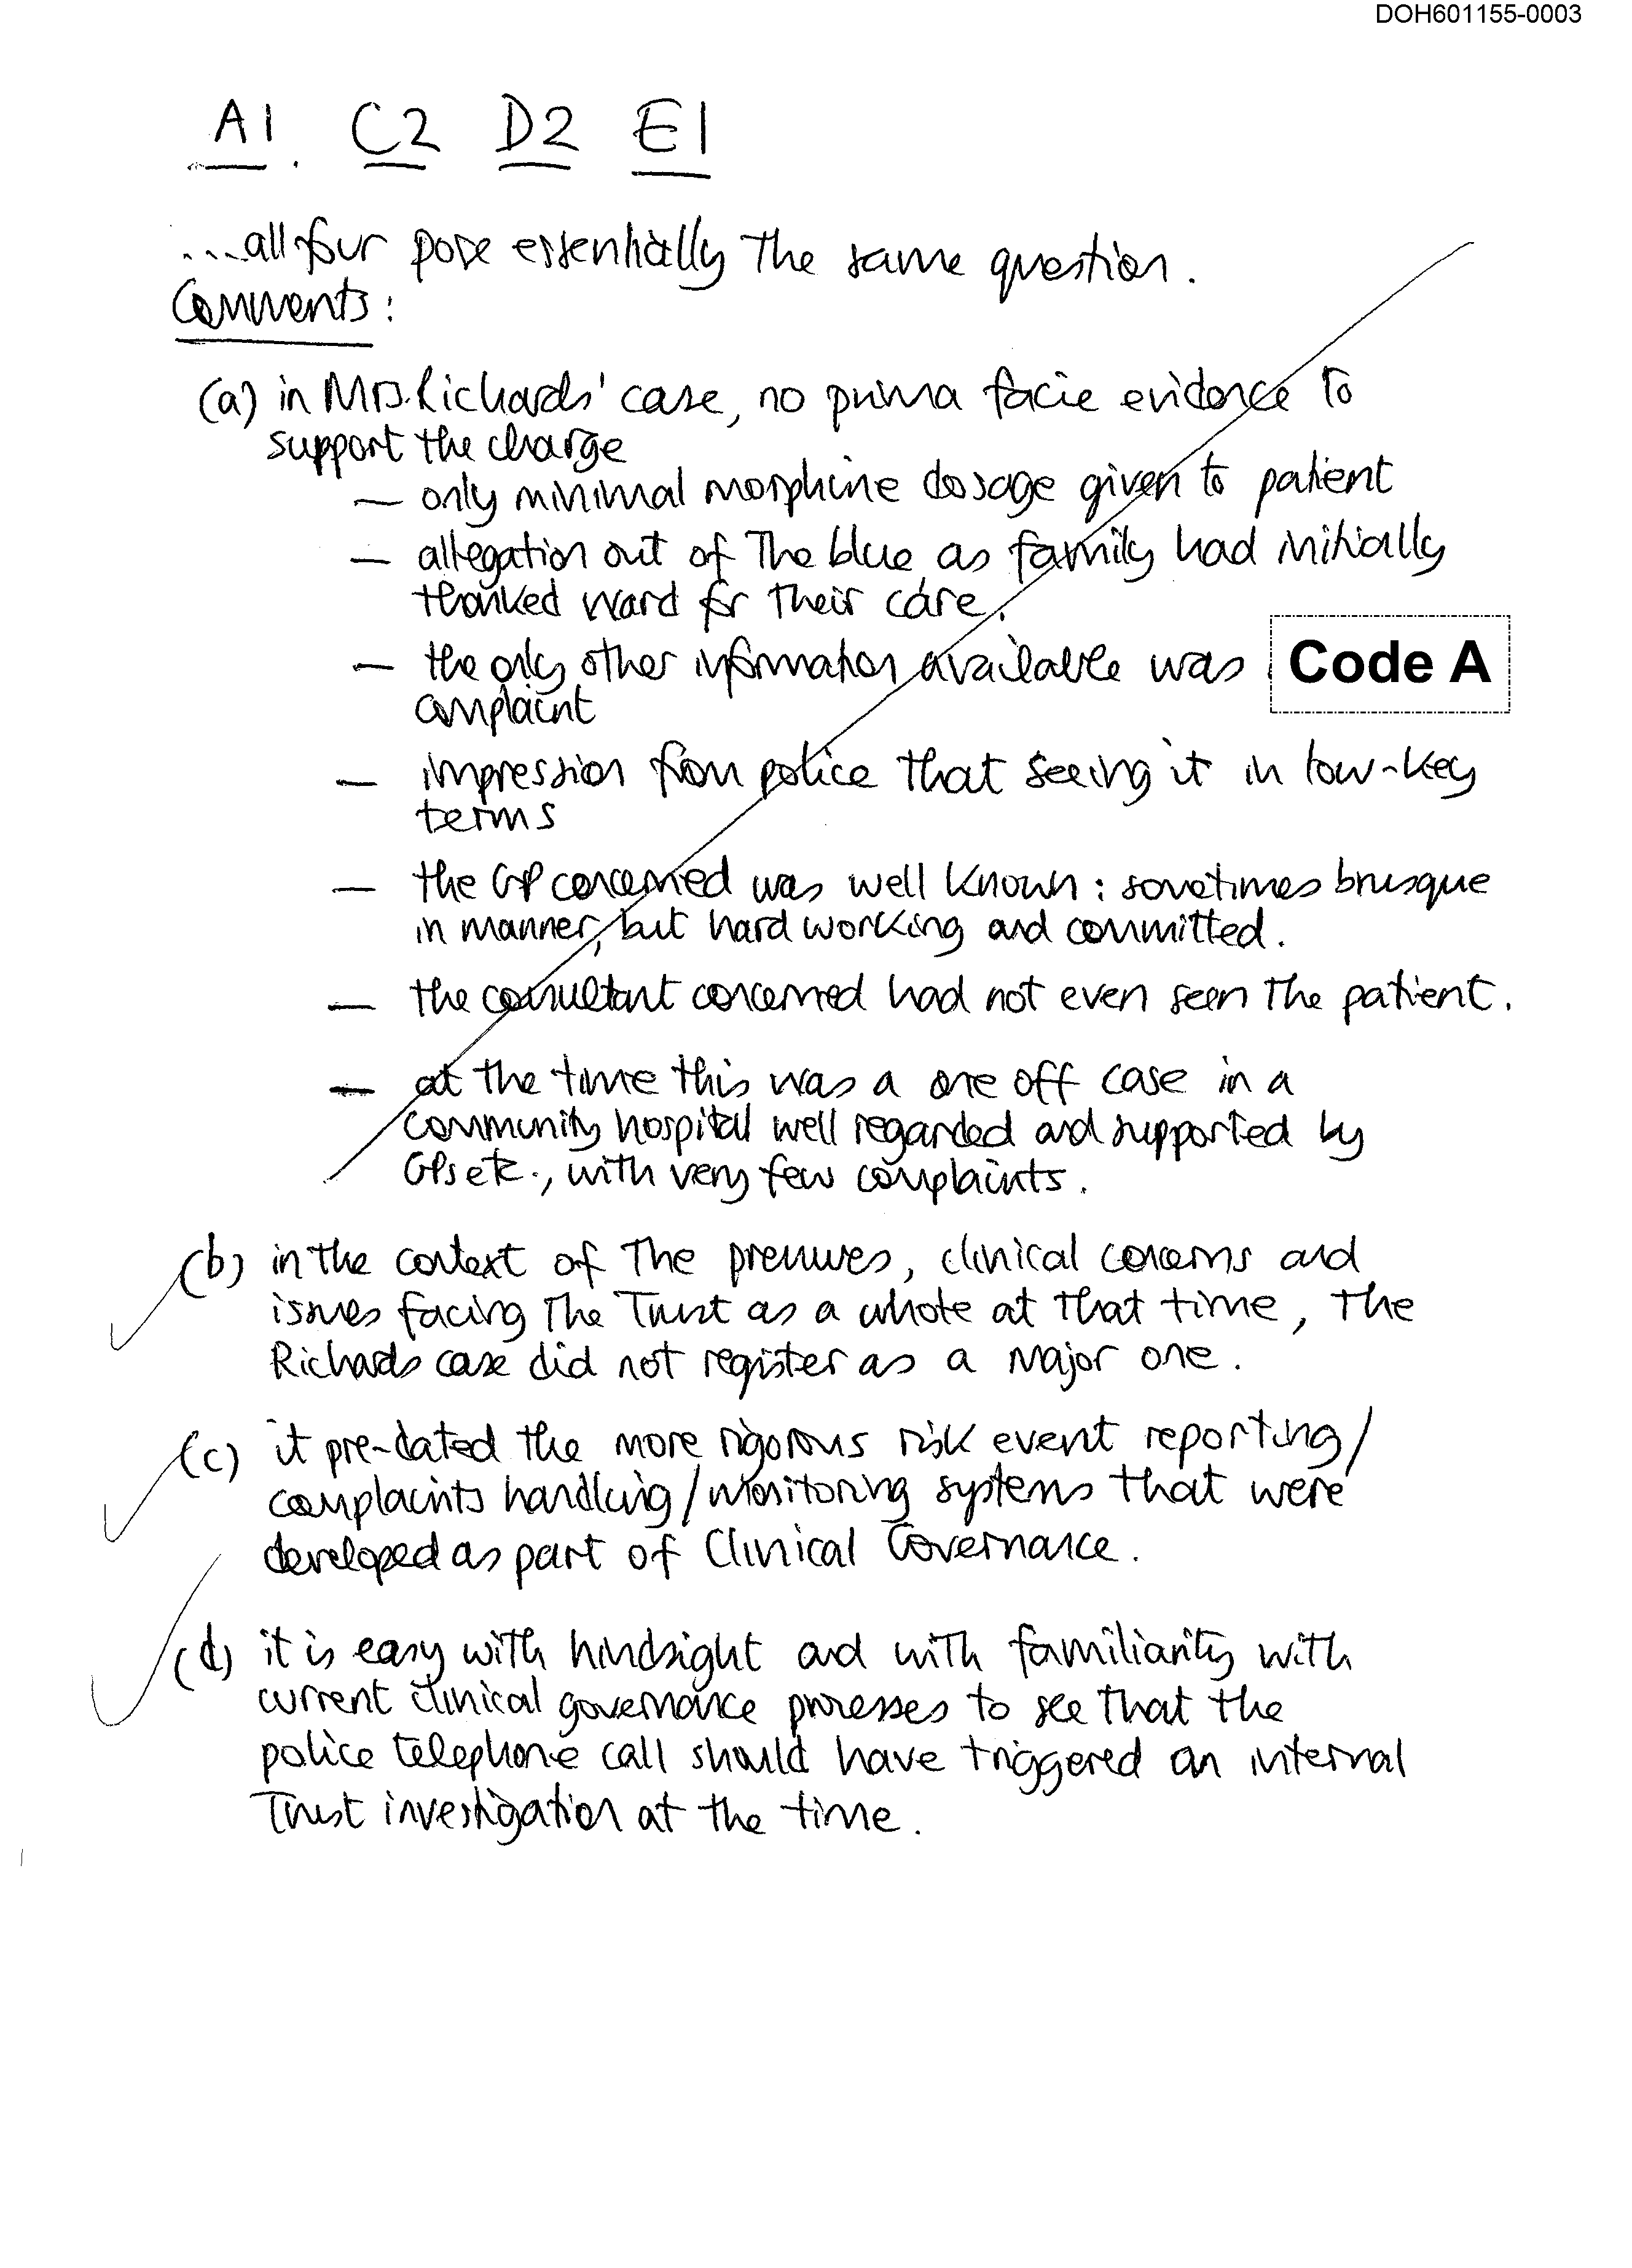 DOH601155-0003
A1. C2 D2 E1
...all four pose essentially the same question.
Comments:
(a) in Mrs. Richards' case, no prima facie evidence to
support the charge
— only minimal morphine dosage given to patient
— allegation out of the blue as family had initially
thanked ward for their care.
— the only other information available was Code A
complaint
— impression from police that seeing it in low-key
terms
— the GP concerned was well known: sometimes brusque
in manner, but hard working and committed.
— the consultant concerned had not even seen the patient.
— at the time this was a one off case in a
community hospital well regarded and supported by
GPs etc., with very few complaints.
(b) in the context of the pressures, clinical concerns and
issues facing the Trust as a whole at that time, the
Richards case did not register as a major one.
(c) it pre-dated the more rigorous risk event reporting/
complaints handling/monitoring systems that were
developed as part of Clinical Governance.
(d) it is easy with hindsight and with familiarity with
current clinical governance processes to see that the
police telephone call should have triggered an internal
Trust investigation at the time.